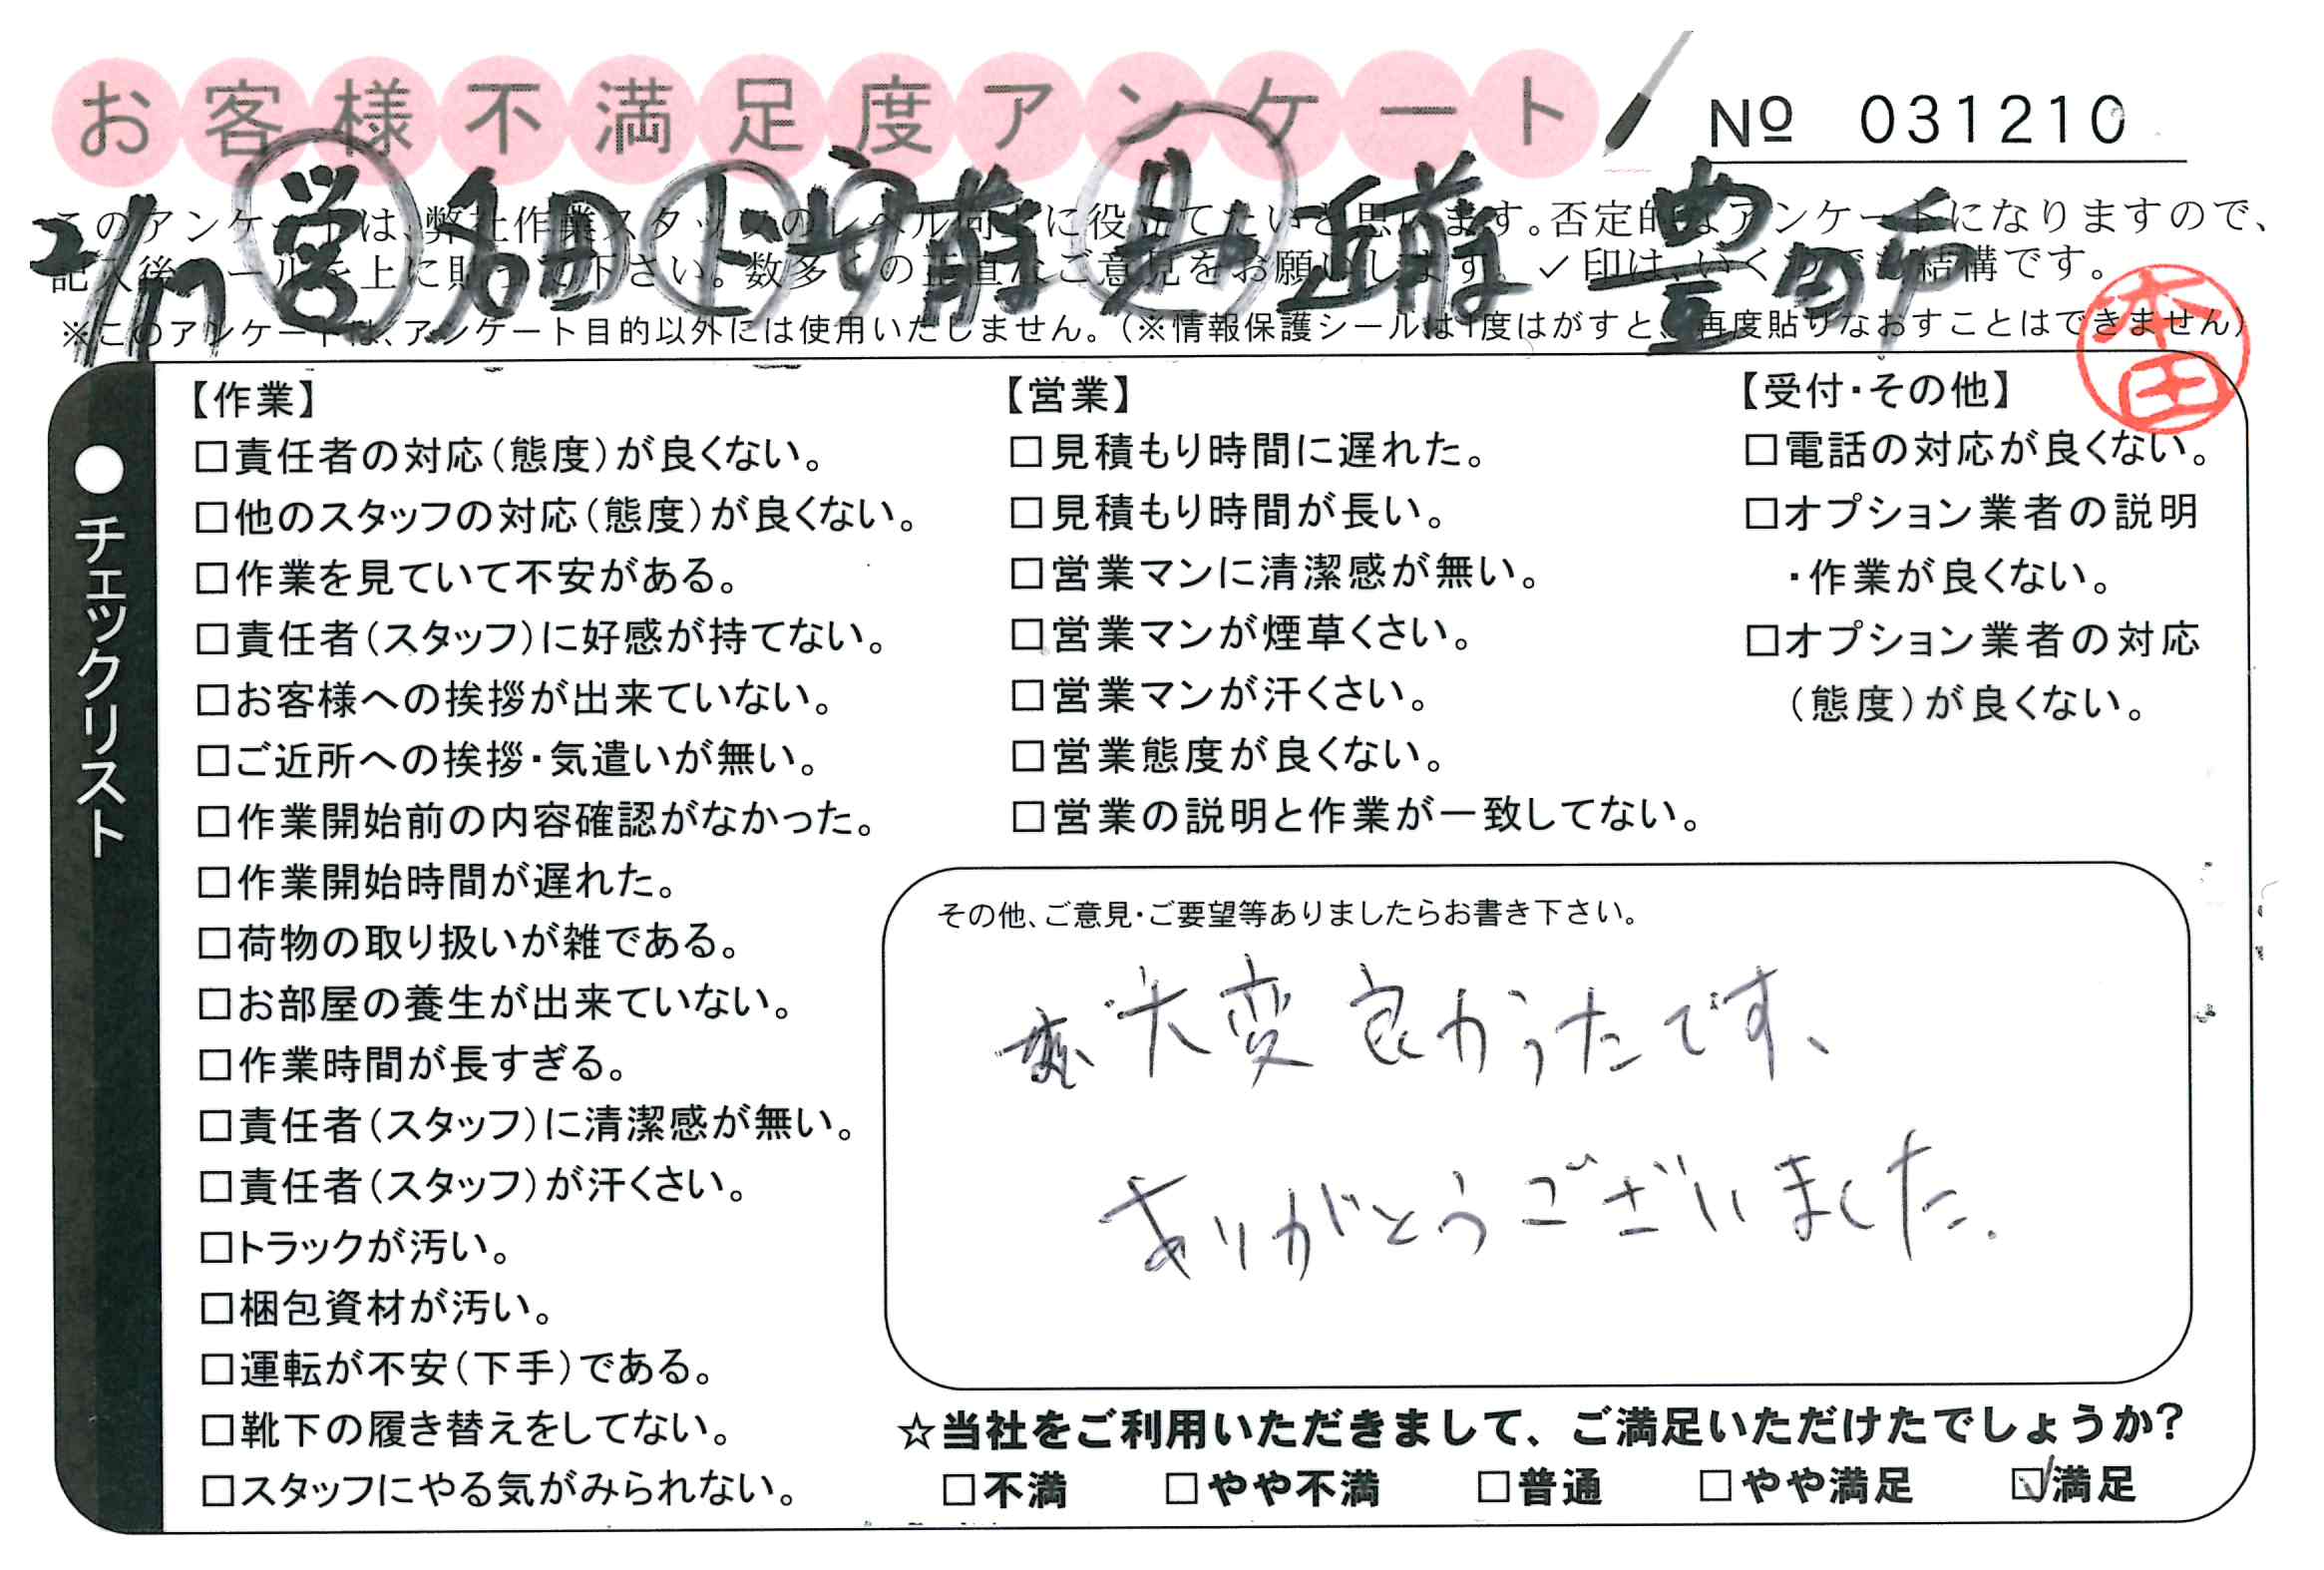 お客様不満足度アンケート
№ 031210
2/17 営
このアンケートは、弊社作業スタッフのレベル向上に役立てたいと思います。否定的なアンケートになりますので、
記入後シールを上に貼って下さい。数多くの正直なご意見をお願いします。✓印は、いくつでも結構です。
※このアンケートは、アンケート目的以外には使用いたしません。(※情報保護シールは1度はがすと、再度貼りなおすことはできません)
本田
●チェックリスト
【作業】
□責任者の対応(態度)が良くない。
□他のスタッフの対応(態度)が良くない。
□作業を見ていて不安がある。
□責任者(スタッフ)に好感が持てない。
□お客様への挨拶が出来ていない。
□ご近所への挨拶・気遣いが無い。
□作業開始前の内容確認がなかった。
□作業開始時間が遅れた。
□荷物の取り扱いが雑である。
□お部屋の養生が出来ていない。
□作業時間が長すぎる。
□責任者(スタッフ)に清潔感が無い。
□責任者(スタッフ)が汗くさい。
□トラックが汚い。
□梱包資材が汚い。
□運転が不安(下手)である。
□靴下の履き替えをしてない。
□スタッフにやる気がみられない。
【営業】
□見積もり時間に遅れた。
□見積もり時間が長い。
□営業マンに清潔感が無い。
□営業マンが煙草くさい。
□営業マンが汗くさい。
□営業態度が良くない。
□営業の説明と作業が一致してない。
【受付・その他】
□電話の対応が良くない。
□オプション業者の説明
・作業が良くない。
□オプション業者の対応
(態度)が良くない。
その他、ご意見・ご要望等ありましたらお書き下さい。
大変良かったです、
ありがとうございました.
☆当社をご利用いただきまして、ご満足いただけたでしょうか?
□不満 □やや不満 □普通 □やや満足 ☑満足